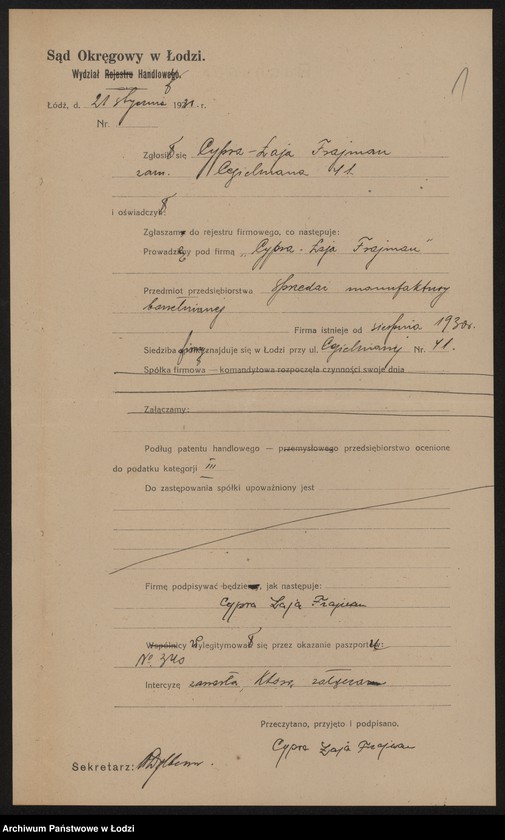 Sąd Okręgowy w Łodzi.
Wydział Rejestru Handlowego.
Łódź, d. 21 stycznia 1931 r.
Nr.
Zgłosił się Cypra-Łaja Frajman
zam. Cegielniana 41.
i oświadczył:
Zgłaszamy do rejestru firmowego, co następuje:
Prowadzący pod firmą „Cypra-Łaja Frajman"
Przedmiot przedsiębiorstwa sprzedaż manufaktury
bawełnianej
Firma istnieje od sierpnia 1930 r.
Siedziba firmy znajduje się w Łodzi przy ul. Cegielnianej Nr. 41.
Spółka firmowa — komandytowa rozpoczęła czynności swoje dnia
Załączamy:
Podług patentu handlowego — przemysłowego przedsiębiorstwo ocenione
do podatku kategorji III
Do zastępowania spółki upoważniony jest
Firmę podpisywać będziemy, jak następuje:
Cypra Łaja Frajman
Wspólnicy wylegitymował się przez okazanie paszportu:
No 340
Intercyzę zawarła, którą załącza
Przeczytano, przyjęto i podpisano.
Cypra Łaja Frajman
Sekretarz:
Archiwum Państwowe w Łodzi